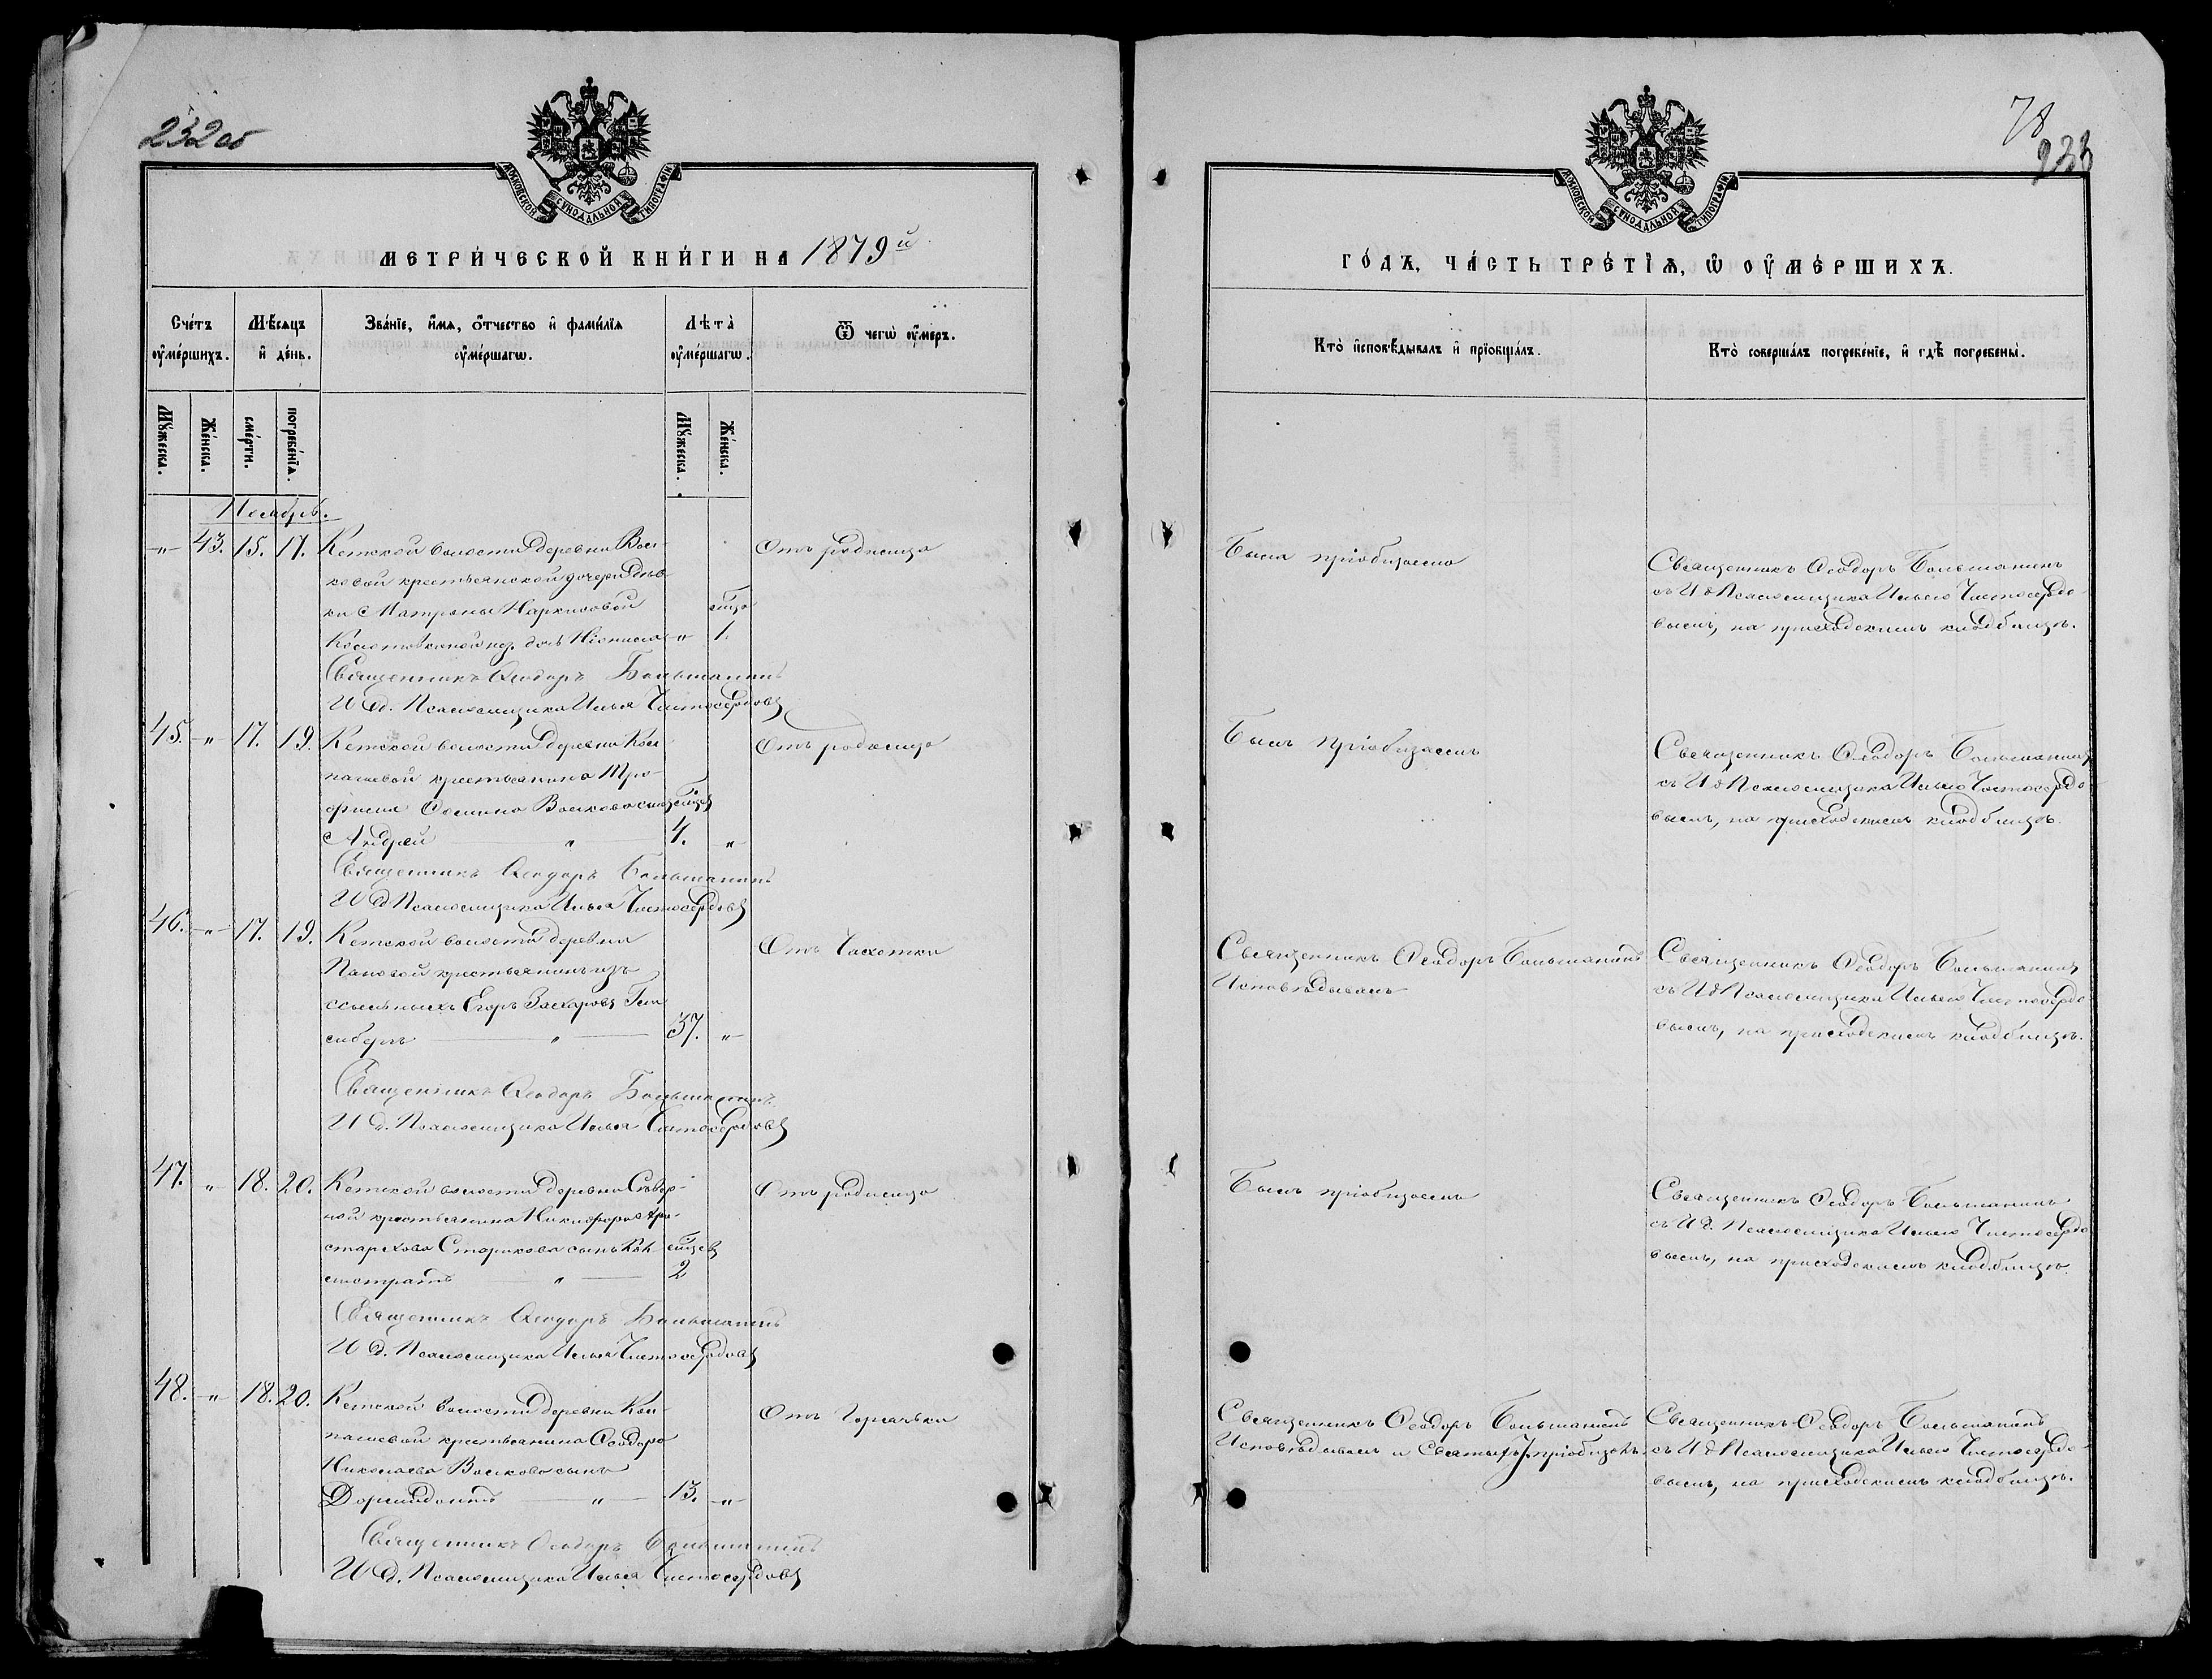 232 об
МОСКОВСКОЙ СѴНОДАЛЬНОЙ ТИПОГРАФІИ
МЕТРИ́ЧЕСКОЙ КНИ́ГИ НА 1879й
Сче́тъ ᲂу҆ме́ршихъ.
Мѣ́сяцъ и҆ де́нь.
Зва́нїе, и҆́мѧ, ѻ҆́тчество и҆ фамѝлїѧ ᲂу҆ме́ршагѡ.
Лѣ́та ᲂу҆ме́ршагѡ.
Ѿ чегѡ̀ ᲂу҆́меръ.
Мꙋ́жеска.
Же́нска.
сме́рти.
погребе́нїѧ.
Мꙋ́жеска.
Же́нска.
Ноябрь.
-„- 43. 15. 17. Кетской волости деревни Вол-
ковой крестьянской дочери дѣв-
ки Матроны Наркисовой
нез. дочь -„- 1.
Отъ родимца
Священникъ Ѳеодоръ Большанинъ
И д. Псаломщика Илья Чистосердовъ
45. -„- 17. 19. Кетской волости деревни Кол-
пашевой крестьянина Тро-
фима Волкова сынъ
Андрей „ 4. „
Отъ родимца
Священникъ Ѳеодоръ Большанинъ
И д Псаломщика Илья Чистосердовъ
46. -„- 17. 19. Кетской волости деревни
Пановой крестьянинъ изъ
ссыльныхъ Егоръ Захаровъ Гин-
сбергъ „ 37. -„-
Отъ Чахотки
Священникъ Ѳеодоръ Большанинъ
И д. Псаломщика Илья Чистосердовъ
47. „ 18. 20. Кетской волости деревни Сѣвер-
ной крестьянина Никифора Ари-
стархова Старикова сынъ Кал-
листратъ „ 2
Отъ родимца
Священникъ Ѳеодоръ Большанинъ
И д. Псаломщика Илья Чистосердовъ
48. -„- 18. 20. Кетской волости деревни Кол-
пашевой крестьянина Ѳеодора
Николаева Волкова сынъ
Дормидонтъ „ 13. -„-
Отъ Горячки
Священникъ Ѳеодоръ Большанинъ
И д. Псаломщика Илья Чистосердовъ
78
233
МОСКОВСКОЙ СѴНОДАЛЬНОЙ ТИПОГРАФІИ
ГО́ДЪ, ЧА́СТЬ ТРЕ́ТЇѦ, Ѡ҆ ОУ҆МЕ́РШИХЪ.
Кто̀ и҆сповѣ́дывалъ и҆ прїѡбща́лъ.
Кто̀ соверша́лъ погребе́нїе, и҆ гдѣ̀ погребены̀.
Была пріобщаема
Священникъ Ѳеодоръ Большанинъ
съ И д Псаломщика Ильею Чистосердо-
вымъ, на приходскомъ кладбищѣ.
Былъ Пріобщаемъ
Священникъ Ѳеодоръ Большанинъ
съ И д Псаломщика Ильею Чистосердо-
вымъ, на приходскомъ кладбищѣ.
Священникъ Ѳеодоръ Большанинъ
Исповѣдывалъ
Священникъ Ѳеодоръ Большанинъ
съ И д Псаломщика Ильею Чистосердо-
вымъ, на приходскомъ кладбищѣ.
Былъ пріобщаемъ
Священникъ Ѳеодоръ Большанинъ
съ И д. Псаломщика Ильею Чистосердо-
вымъ, на приходскомъ кладбищѣ.
Священникъ Ѳеодоръ Большанинъ
Исповѣдывалъ и Святыхъ Т. пріобщалъ.
Священникъ Ѳеодоръ Большанинъ
съ И д Псаломщика Ильею Чистосердо-
вымъ, на приходскомъ кладбищѣ.